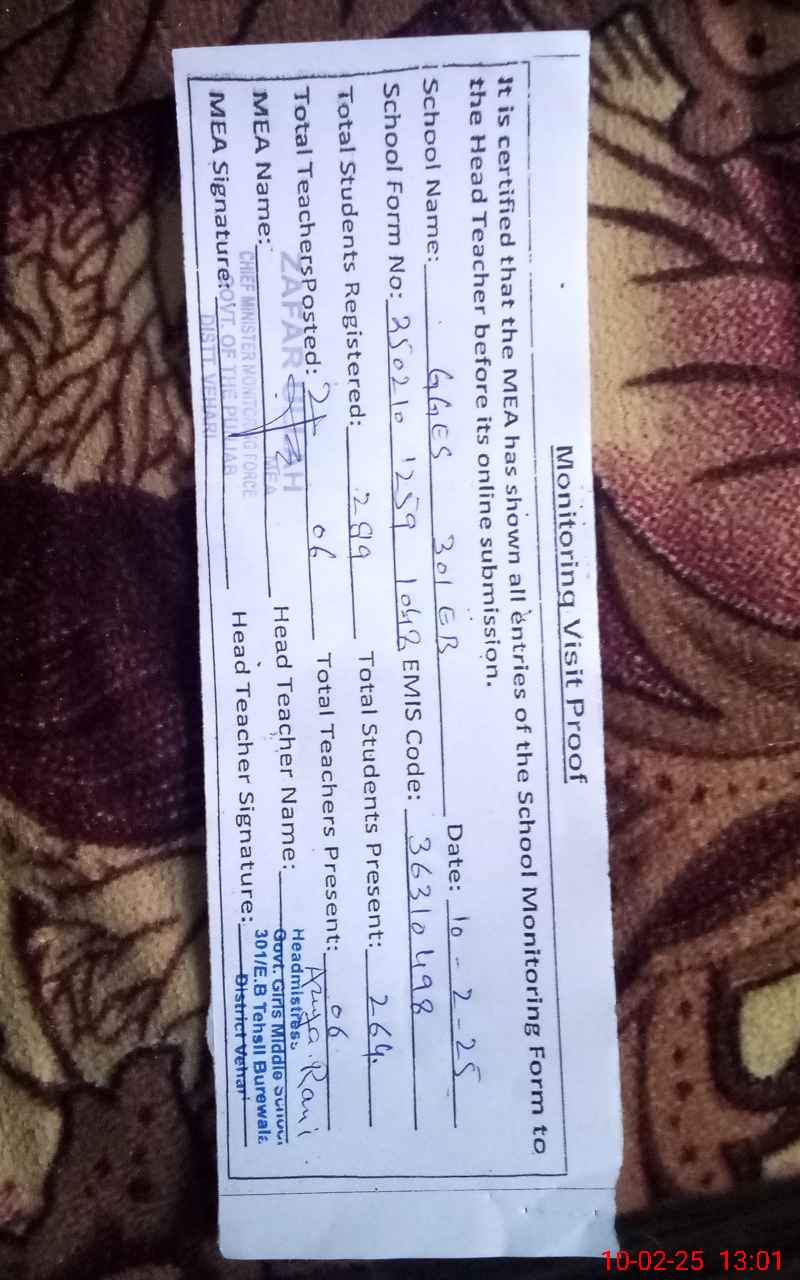 Monitoring Visit Proof
It is certified that the MEA has shown all entries of the School Monitoring Form to
the Head Teacher before its online submission.
School Name: GGES 301 EB Date: 10-2-25
School Form No: 250210 1259 1042 EMIS Code: 36310498
Total Students Registered: 299 Total Students Present: 264
Total TeachersPosted: 06 Total Teachers Present: 06
MEA Name: ZAFAR Head Teacher Name: Rani
MEA
CHIEF MINISTER MONITORING FORCE
MEA Signature: GOVT. OF THE PUNJAB Head Teacher Signature:
DISTT. VEHARI
Headmistress
Govt. Girls Middle School
301/E.B Tehsil Burewala
District Vehari
10-02-25 13:01